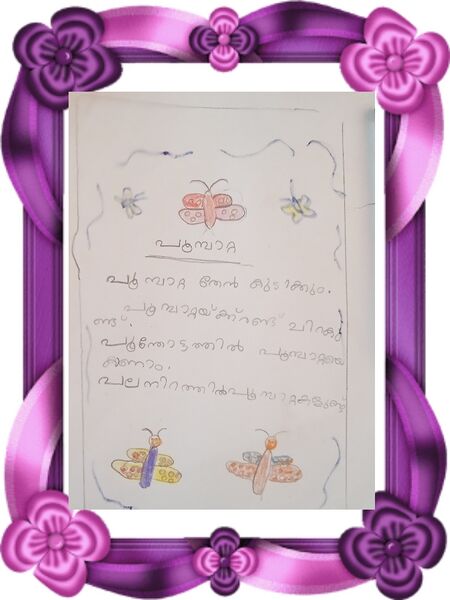 പൂമ്പാറ്റ
പൂമ്പാറ്റ തേൻ കുടിക്കും.
പൂമ്പാറ്റയ്ക്ക് രണ്ട് ചിറകു
ണ്ട്.
പൂന്തോട്ടത്തിൽ പൂമ്പാറ്റയെ
കാണാം.
പല നിറത്തിൽ പൂമ്പാറ്റകളുണ്ട്